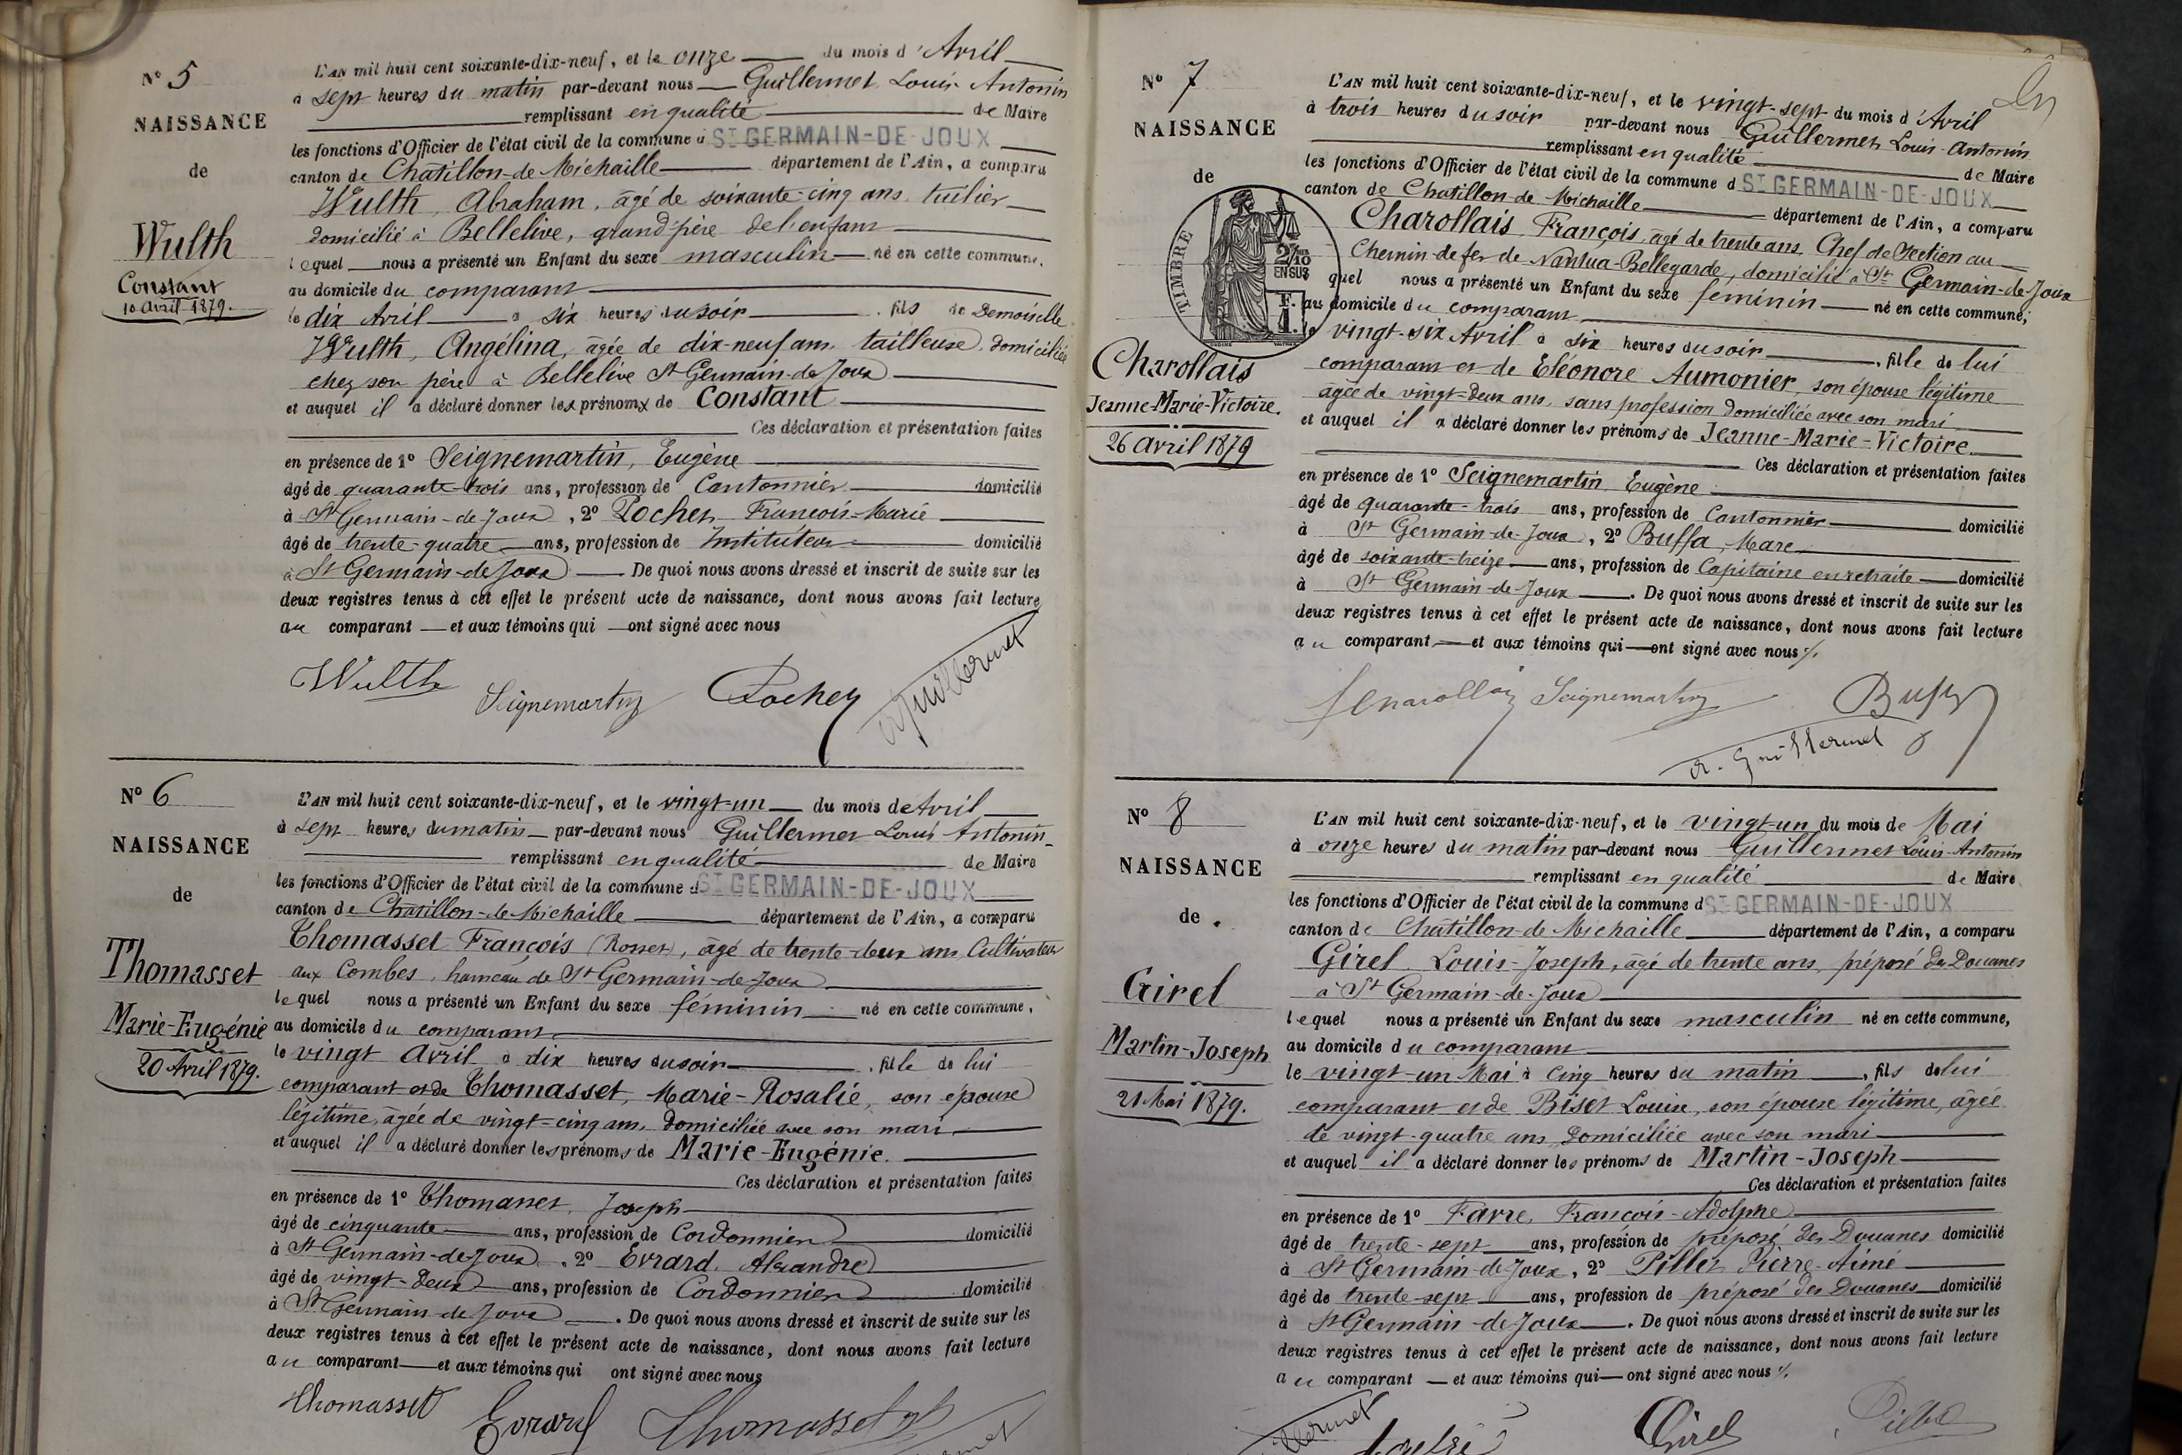 N° 5
NAISSANCE
de
Wulth
Constant
10 Avril 1879.
L'AN mil huit cent soixante-dix-neuf, et le onze du mois d'Avril
à sept heures du matin par-devant nous Guillermet Louis Antonin
remplissant en qualité de Maire
les fonctions d'Officier de l'état civil de la commune d ST GERMAIN-DE-JOUX
canton de Châtillon-de-Michaille département de l'Ain, a comparu
Wulth, Abraham, âgé de soixante-cinq ans tuilier
domicilié à Bellelive, grand'père de l'enfant
lequel nous a présenté un Enfant du sexe masculin né en cette commune,
au domicile du comparant
le dix Avril à six heures du soir, fils de Demoiselle
Wulth, Angélina, âgée de dix-neuf ans, tailleuse, domiciliée
chez son père à Bellelive St Germain-de-Joux
et auquel il a déclaré donner les prénoms de Constant
Ces déclaration et présentation faites
en présence de 1° Seignemartin, Eugène
âgé de quarante-trois ans, profession de Cantonnier domicilié
à St Germain-de-Joux, 2° Pochet François-Marie
âgé de trente-quatre ans, profession de Instituteur domicilié
à St Germain-de-Joux De quoi nous avons dressé et inscrit de suite sur les
deux registres tenus à cet effet le présent acte de naissance, dont nous avons fait lecture
au comparant et aux témoins qui ont signé avec nous
Wulth Seignemartin Pochet A Guillermet
N° 6
NAISSANCE
de
Thomasset
Marie-Eugénie
20 Avril 1879.
L'AN mil huit cent soixante-dix-neuf, et le vingt-un du mois de Avril
à sept heures du matin par-devant nous Guillermet Louis Antonin
remplissant en qualité de Maire
les fonctions d'Officier de l'état civil de la commune d ST GERMAIN-DE-JOUX
canton de Châtillon-de-Michaille département de l'Ain, a comparu
Thomasset François (Rosset), âgé de trente-deux ans, Cultivateur
aux Combes, hameau de St Germain-de-Joux
lequel nous a présenté un Enfant du sexe féminin né en cette commune,
au domicile du comparant
le vingt Avril à dix heures du soir, fille de lui
comparant et de Thomasset, Marie-Rosalie, son épouse
légitime, âgée de vingt-cinq ans, domiciliée avec son mari
et auquel il a déclaré donner les prénoms de Marie-Eugénie.
Ces déclaration et présentation faites
en présence de 1° Thomasset, Joseph
âgé de cinquante ans, profession de Cordonnier domicilié
à St Germain-de-Joux, 2° Evrard, Alexandre
âgé de vingt-deux ans, profession de Cordonnier domicilié
à St Germain-de-Joux. De quoi nous avons dressé et inscrit de suite sur les
deux registres tenus à cet effet le présent acte de naissance, dont nous avons fait lecture
au comparant et aux témoins qui ont signé avec nous
Thomasset Evrard Thomasset
N° 7
NAISSANCE
de
TIMBRE
2/10
EN SUS
F.
1.
Charollais
Jeanne-Marie-Victoire.
26 avril 1879
L'AN mil huit cent soixante-dix-neuf, et le vingt-sept du mois d'Avril
à trois heures du soir par-devant nous Guillermet Louis-Antonin
remplissant en qualité de Maire
les fonctions d'Officier de l'état civil de la commune d ST GERMAIN-DE-JOUX
canton de Châtillon-de-Michaille département de l'Ain, a comparu
Charollais, François, âgé de trente ans, Chef de Section au
Chemin de fer de Nantua-Bellegarde, domicilié à St Germain-de-Joux
quel nous a présenté un Enfant du sexe féminin né en cette commune,
au domicile du comparant
le vingt-six Avril à six heures du soir, fille de lui
comparant et de Eléonore Aumonier, son épouse légitime
âgée de vingt-deux ans, sans profession domiciliée avec son mari
et auquel il a déclaré donner les prénoms de Jeanne-Marie-Victoire
Ces déclaration et présentation faites
en présence de 1° Seignemartin Eugène
âgé de quarante-trois ans, profession de Cantonnier domicilié
à St Germain-de-Joux, 2° Buffa, Marc
âgé de soixante-treize ans, profession de Capitaine en retraite domicilié
à St Germain-de-Joux. De quoi nous avons dressé et inscrit de suite sur les
deux registres tenus à cet effet le présent acte de naissance, dont nous avons fait lecture
au comparant et aux témoins qui ont signé avec nous
Seignemartin Buffa
A. Guillermet
N° 8
NAISSANCE
de
Girel
Martin-Joseph
21 Mai 1879.
L'AN mil huit cent soixante-dix-neuf, et le vingt-un du mois de Mai
à onze heures du matin par-devant nous Guillermet Louis-Antonin
remplissant en qualité de Maire
les fonctions d'Officier de l'état civil de la commune d ST GERMAIN-DE-JOUX
canton de Châtillon-de-Michaille département de l'Ain, a comparu
Girel Louis-Joseph, âgé de trente ans, préposé des Douanes
à St Germain-de-Joux
lequel nous a présenté un Enfant du sexe masculin né en cette commune,
au domicile du comparant
le vingt-un Mai à cinq heures du matin, fils de lui
comparant et de Biset Louise, son épouse légitime, âgée
de vingt-quatre ans, domiciliée avec son mari
et auquel il a déclaré donner les prénoms de Martin-Joseph
Ces déclaration et présentation faites
en présence de 1° Favre, François-Adolphe
âgé de trente-sept ans, profession de préposé des Douanes domicilié
à St Germain-de-Joux, 2° Pillet Pierre-Aimé
âgé de trente-sept ans, profession de préposé des Douanes domicilié
à St Germain-de-Joux. De quoi nous avons dressé et inscrit de suite sur les
deux registres tenus à cet effet le présent acte de naissance, dont nous avons fait lecture
au comparant et aux témoins qui ont signé avec nous
Girel